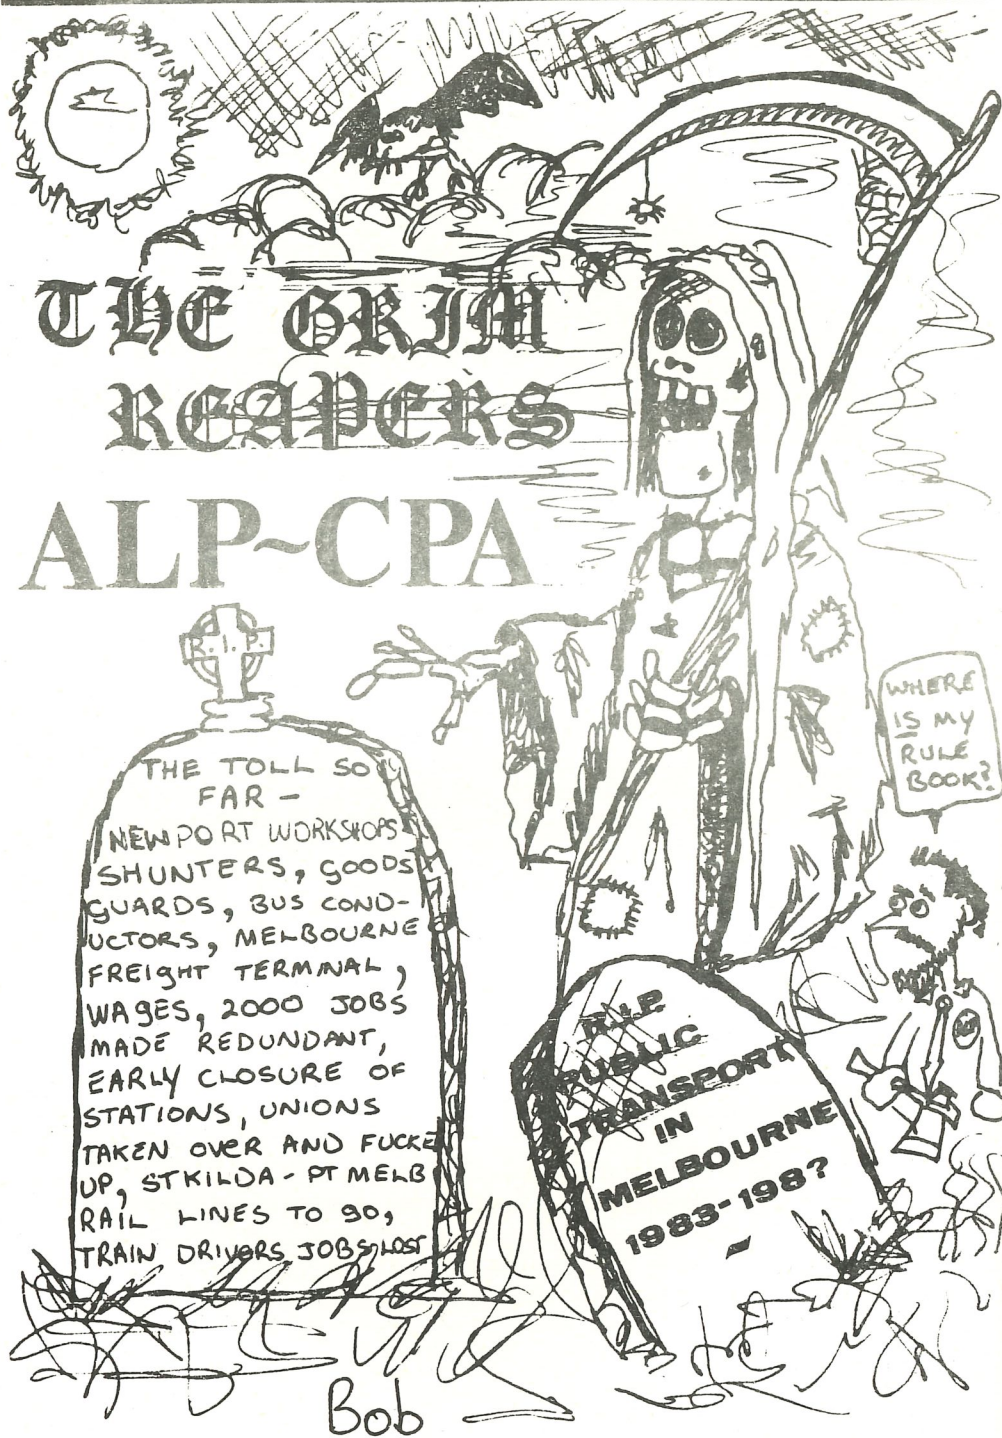 THE GRIM
REAPERS
ALP~CPA
R.I.P.
THE TOLL SO
FAR -
NEWPORT WORKSHOPS
SHUNTERS, GOODS
GUARDS, BUS COND-
UCTORS, MELBOURNE
FREIGHT TERMINAL,
WAGES, 2000 JOBS
MADE REDUNDANT,
EARLY CLOSURE OF
STATIONS, UNIONS
TAKEN OVER AND FUCKE
UP, ST KILDA - PT MELB
RAIL LINES TO GO,
TRAIN DRIVERS JOBS LOST
WHERE
IS MY
RULE
BOOK?
R.I.P.
PUBLIC
TRANSPORT
IN
MELBOURNE
1983-198?
Bob